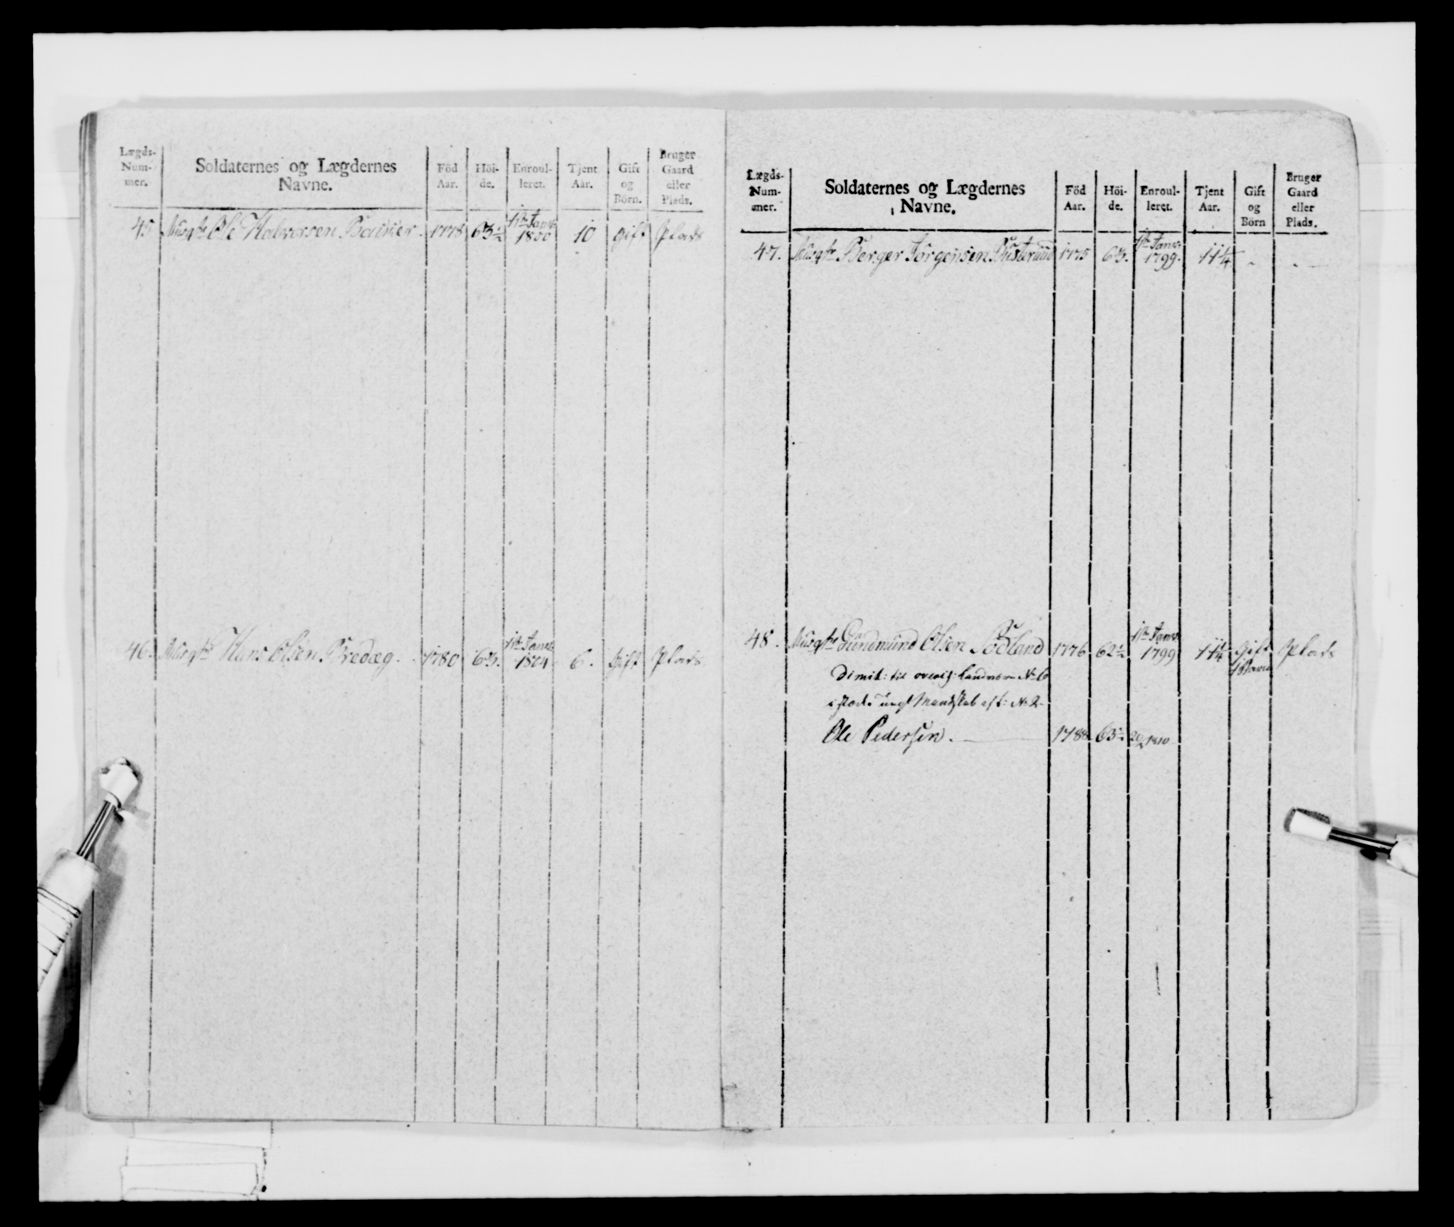 Lægds- Num- mer.
Soldaternes og Lægdernes Navne.
Föd Aar.
Höi- de.
Enroul- leret.
Tjent Aar.
Gift og Börn.
Bruger Gaard eller Plads.
45 Musqtr Ole Halvorsen 1778 63½ 1te Janv: 1800 10 Gift Plads
46. Musqtr Hans Olsen Bredæg. 1780 63. 1te Janv: 1804 6. Gift Plads
Lægds- Num- mer.
Soldaternes og Lægdernes Navne.
Föd Aar.
Höi- de.
Enroul- leret.
Tjent Aar.
Gift og Börn
Bruger Gaard eller Plads.
47. Musqtr Berger Jörgensen 1775 63. 1te Janv: 1799. 11¼ - -
48. Musqtr Gundmund Olsen 1776 62½ 1te Janv: 1799 11¼ Gift Plads
Dimit: til Landværn No 6
i stæden ungt Mandskab eft: No 2
Ole Pedersen. 1788 63 1810